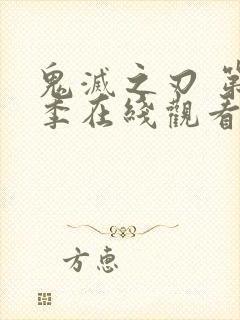 鬼滅之刃 第
季在綫觀看
方惠